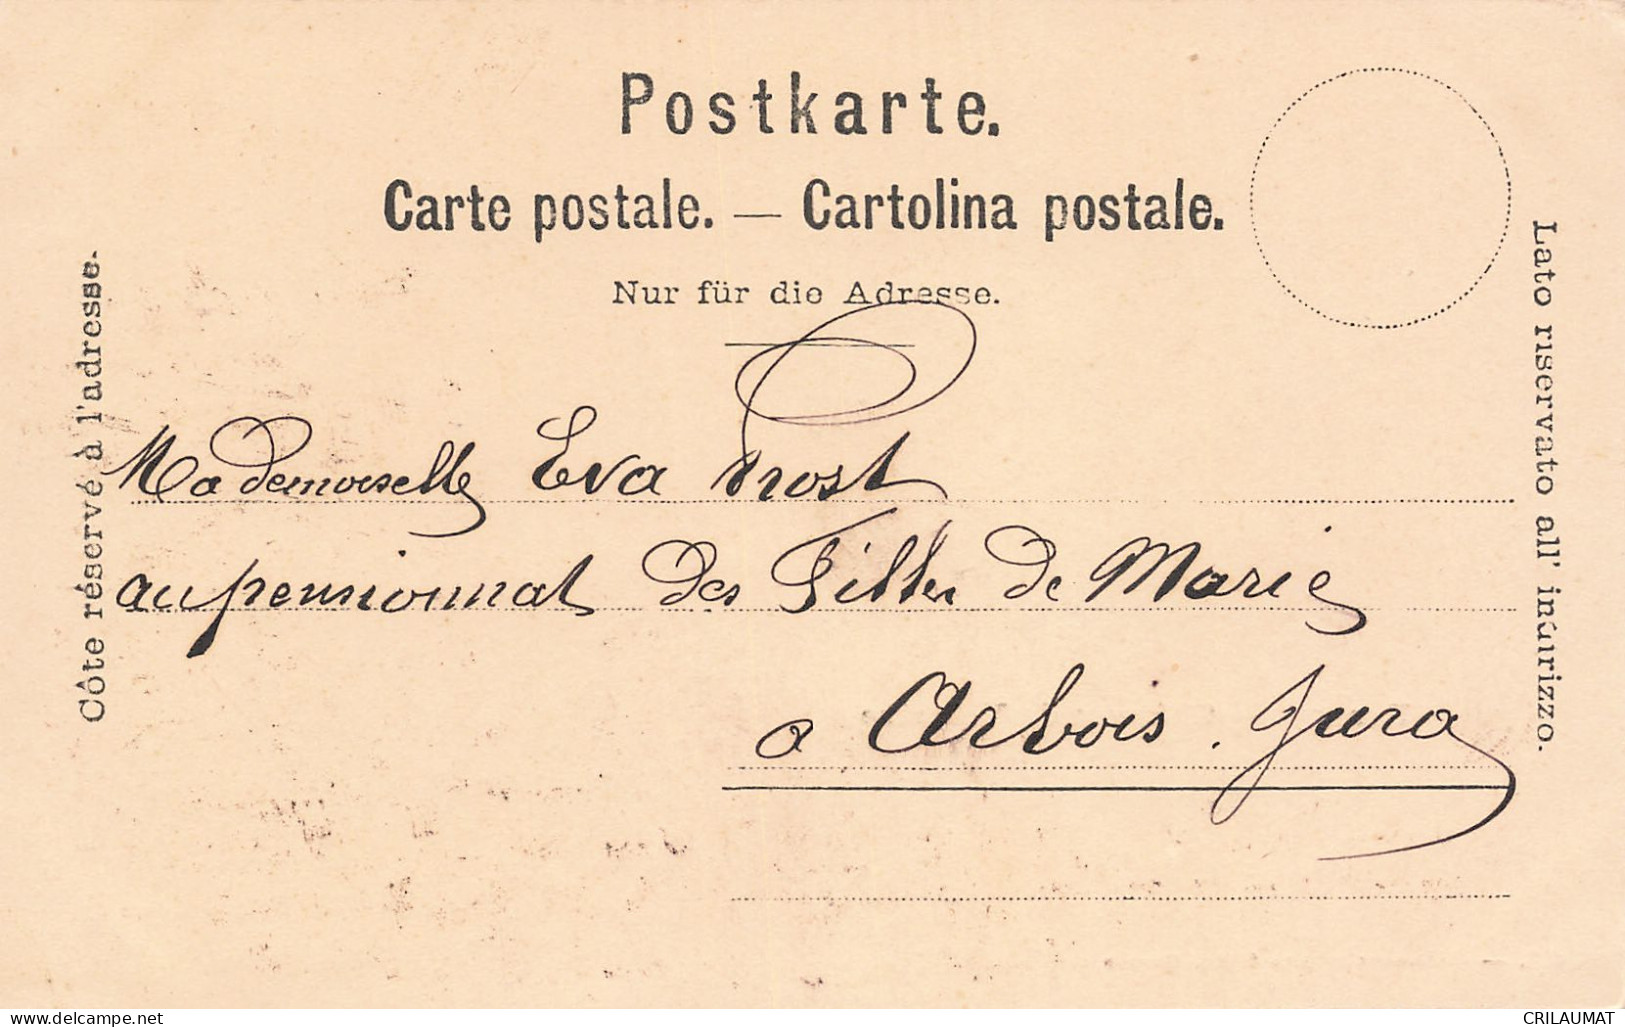 Postkarte.
Carte postale. — Cartolina postale.
Nur für die Adresse.
Côte réservé à l'adresse.
Lato riservato all' indirizzo.
Mademoiselle Eva Prost
au pensionnat des Filles de Marie
a Arbois . Jura
www.delcampe.net
CRILAUMAT